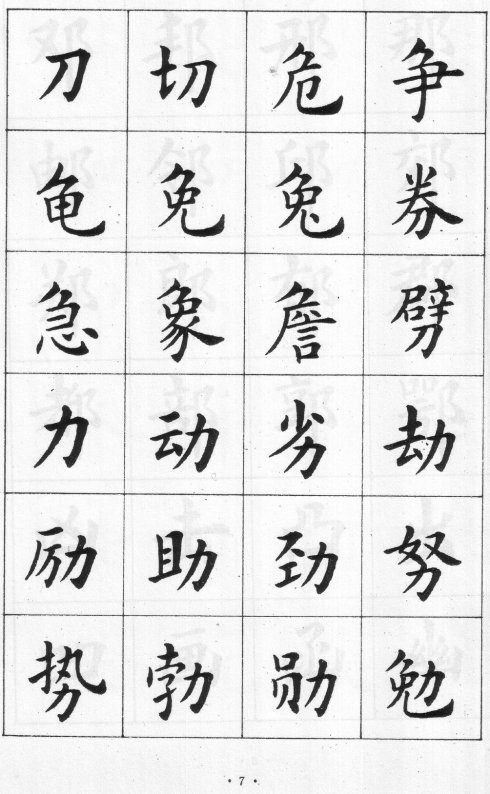 刀切危争
龟免兔券
急象詹劈
力动劣劫
励助劲努
势勃勋勉
·7·